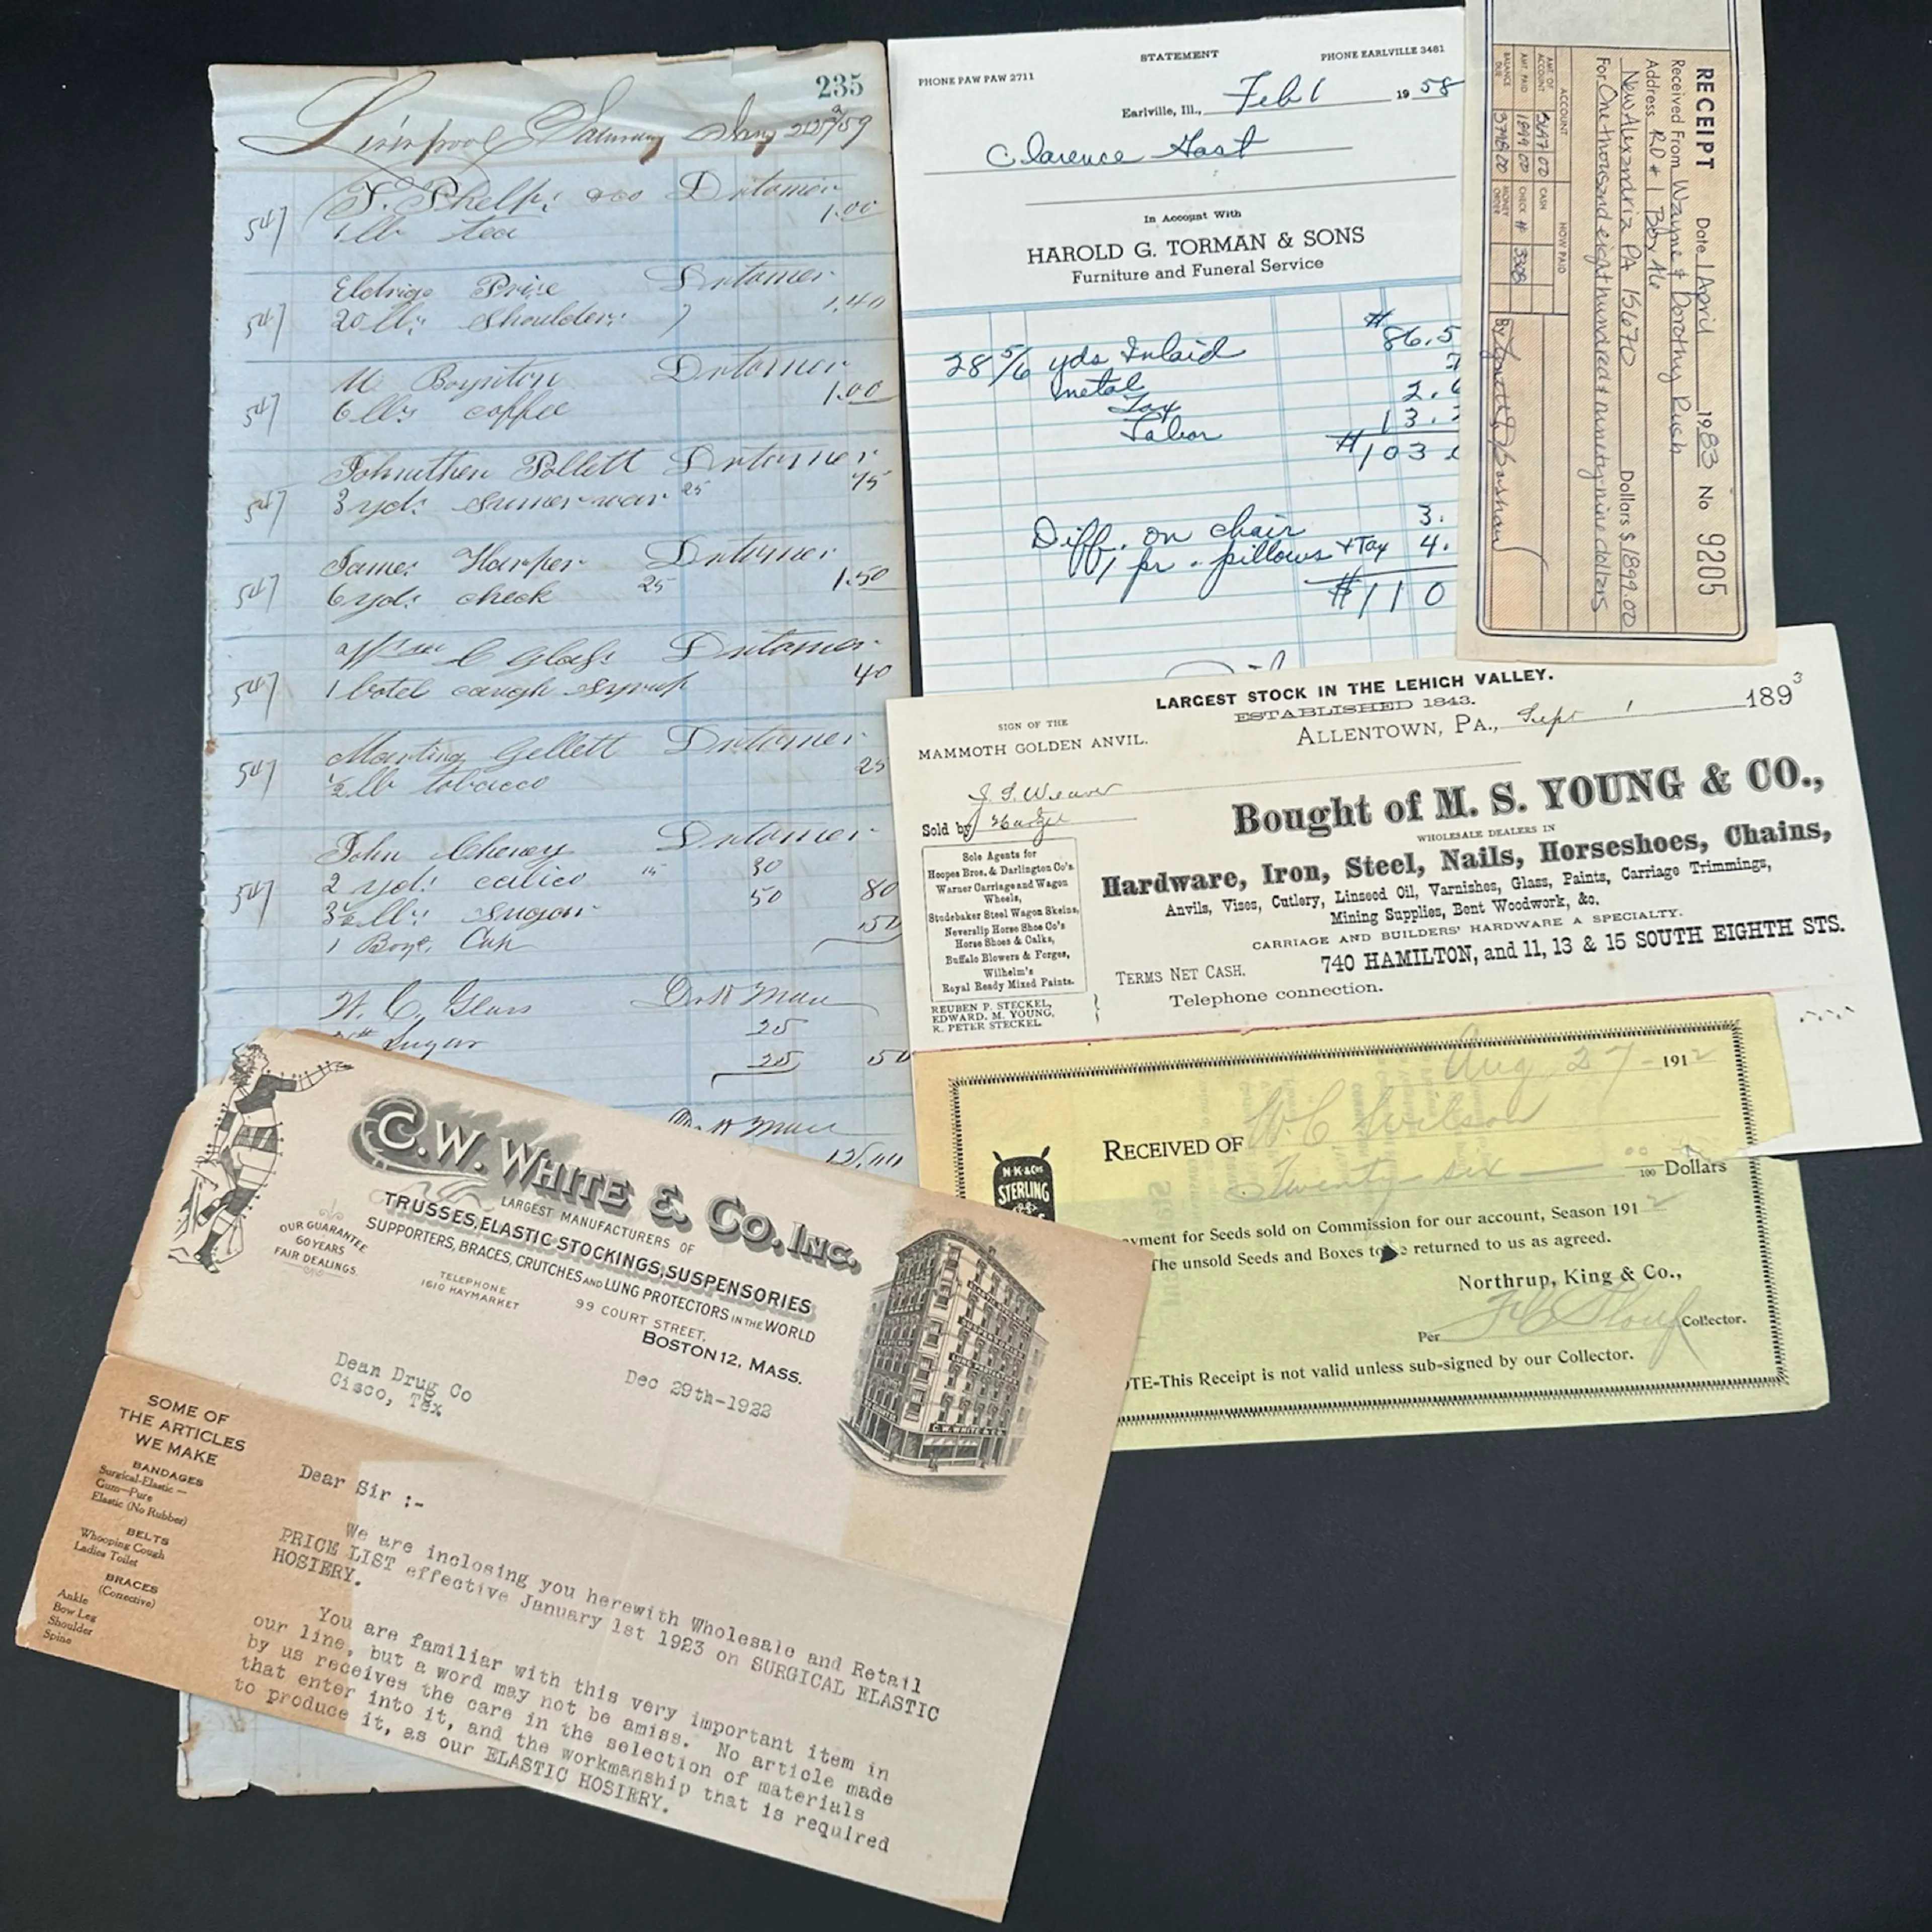 235
Liverpool Saturday
547
T. Phelps
1.00
1 lb tea
Eldrige Price
1.40
547
20 lbs shoulders
M Boyniton
1.00
547
6 lbs coffee
Pollett
75
547
3 yds sumer-wear 25
James Harper
1.50
547
6 yds check 25
Wm C Glass
40
547
1 botel caugh syrup
Gellett
25
547
½ lb tobacco
John Cheney
2 yds calico 15 30
547
3½ lbs sugar 50 80
1 Boys Cap 50
W. C. Glass
25
Sugar
25 50
STATEMENT
PHONE PAW PAW 2711
PHONE EARLVILLE 3481
Earlville, Ill., Feb 1 19 58
Clarence Gast
In Account With
HAROLD G. TORMAN & SONS
Furniture and Funeral Service
28 5/6 yds Inlaid # 86.5
metal 7
Tax 2.6
Labor 13.
#103
Diff. on chair 3.
1 pr. pillows + Tax 4.
#110
RECEIPT Date 1 April 1983 No 9205
Received From Wayne & Dorothy Rush
Address RD # 1 Box 46
New Alexandria PA 15670 Dollars $ 1899.00
For One thousand eight hundred & ninety nine dollars
ACCOUNT
HOW PAID
AMT. OF ACCOUNT 5697 00
CASH
AMT. PAID 1899 00
CHECK # 3308
BALANCE DUE 3798 00
MONEY ORDER
By
LARGEST STOCK IN THE LEHIGH VALLEY.
ESTABLISHED 1843.
SIGN OF THE
MAMMOTH GOLDEN ANVIL.
ALLENTOWN, PA., Sept 1 1893
J. S. Weaver
Bought of M. S. YOUNG & CO.,
Sold by
WHOLESALE DEALERS IN
Hardware, Iron, Steel, Nails, Horseshoes, Chains,
Anvils, Vises, Cutlery, Linseed Oil, Varnishes, Glass, Paints, Carriage Trimmings,
Mining Supplies, Bent Woodwork, &c.
CARRIAGE AND BUILDERS' HARDWARE A SPECIALTY.
740 HAMILTON, and 11, 13 & 15 SOUTH EIGHTH STS.
TERMS NET CASH.
Telephone connection.
Sole Agents for
Hoopes Bros. & Darlington Co's.
Warner Carriage and Wagon
Wheels,
Studebaker Steel Wagon Skeins,
Neverslip Horse Shoe Co's
Horse Shoes & Calks,
Buffalo Blowers & Forges,
Wilhelm's
Royal Ready Mixed Paints.
REUBEN P. STECKEL,
EDWARD. M. YOUNG,
R. PETER STECKEL
Aug 27 - 1912
RECEIVED OF W C Wilson
Twenty six 00/100 Dollars
N·K·&Co's
STERLING
yment for Seeds sold on Commission for our account, Season 1912
The unsold Seeds and Boxes to be returned to us as agreed.
Northrup, King & Co.,
Per Collector.
OTE-This Receipt is not valid unless sub-signed by our Collector.
C.W. WHITE & CO. INC.
LARGEST MANUFACTURERS OF
TRUSSES, ELASTIC STOCKINGS, SUSPENSORIES
SUPPORTERS, BRACES, CRUTCHES AND LUNG PROTECTORS IN THE WORLD
OUR GUARANTEE
60 YEARS
FAIR DEALINGS.
TELEPHONE
1610 HAYMARKET
99 COURT STREET,
BOSTON 12, MASS.
C.W. WHITE & CO.
Dean Drug Co
Cisco, Tex
Dec 29th-1922
SOME OF
THE ARTICLES
WE MAKE
BANDAGES
Surgical-Elastic —
Gum—Pure
Elastic (No Rubber)
BELTS
Whooping Cough
Ladies Toilet
BRACES
(Corrective)
Ankle
Bow Leg
Shoulder
Spine
Dear Sir :-
We are inclosing you herewith Wholesale and Retail
PRICE LIST effective January 1st 1923 on SURGICAL ELASTIC
HOSIERY.
You are familiar with this very important item in
our line, but a word may not be amiss. No article made
by us receives the care in the selection of materials
that enter into it, and the workmanship that is required
to produce it, as our ELASTIC HOSIERY.